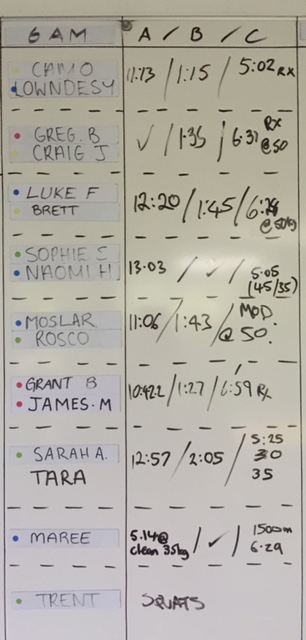 6 AM A / B / C
CAMO
LOWNDESY 11:13 / 1:15 / 5:02 RX
GREG. B ✓ / 1:35 / 6:31 RX
CRAIG J @50
LUKE F 12:20 / 1:45 /
BRETT @ 50kg
SOPHIE S
NAOMI H 13.03 / ✓ / 5:05
(45/35)
MOSLAR 11:06 / 1:43 / MOD
ROSCO @ 50.
GRANT B 1:27 / 6:59 Rx
JAMES.M
SARAH A. 12:57 / 2:05 / 5:25
TARA 30
35
MAREE 5.14@ / ✓ / 1500m
clean 35kg 6.29
TRENT SQUATS